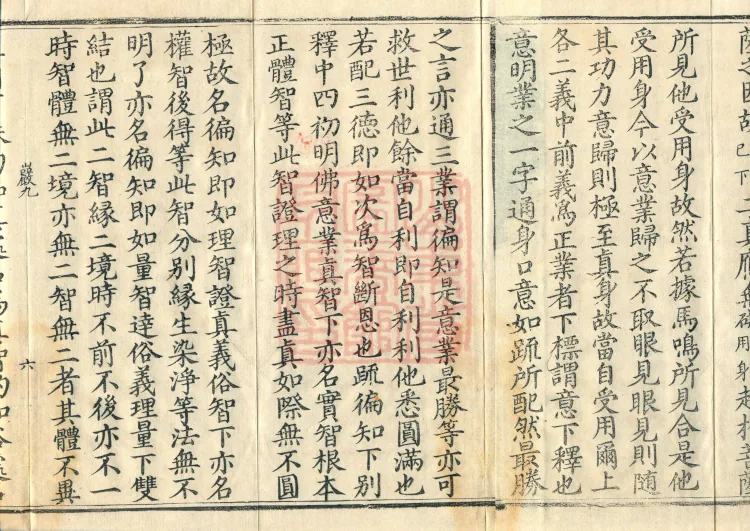 所見他受用身故然若據馬鳴所見合是他
受用身今以意業歸之不取眼見眼見則隨
其功力意歸則極至真身故當自受用爾上
各二義中前義爲正業者下標謂意下釋也
意明業之一字通身口意如䟽所配然最勝
之言亦通三業謂徧知是意業最勝等亦可
救世利他餘當自利即自利利他悉圓滿也
若配三德即如次爲智斷恩也䟽徧知下別
釋中四初明佛意業真智下亦名實智根本
正體智等此智證理之時盡真如際無不圓
極故名徧知即如理智證真義俗智下亦名
權智後得等此智分別緣生染淨等法無不
明了亦名徧知即如量智達俗義理量下雙
結也謂此二智緣二境時不前不後亦不一
時智體無二境亦無二智無二者其體不異
巖九
六